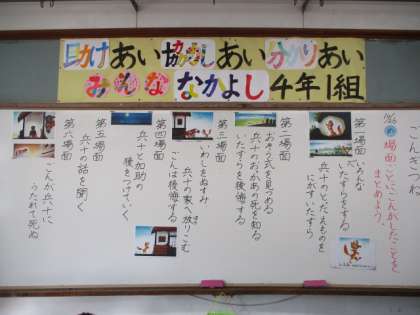 助けあい協力しあい分かりあい
みんななかよし4年1組
ごんぎつね
10/26 め 場面ごとにごんがしたことをまとめよう。
第一場面
いろんな
いたずらをする
兵十のとったえものを
にがすいたずら
第二場面
おそう式を見つめる
兵十のおかあの死を知る
いたずらを後悔する
第三場面
いわしをぬすみ
兵十の家へ放りこむ
ごんは後悔する
第四場面
兵十と加助の
後をつけていく
第五場面
兵十の話を聞く
第六場面
ごんが兵十に
うたれて死ぬ